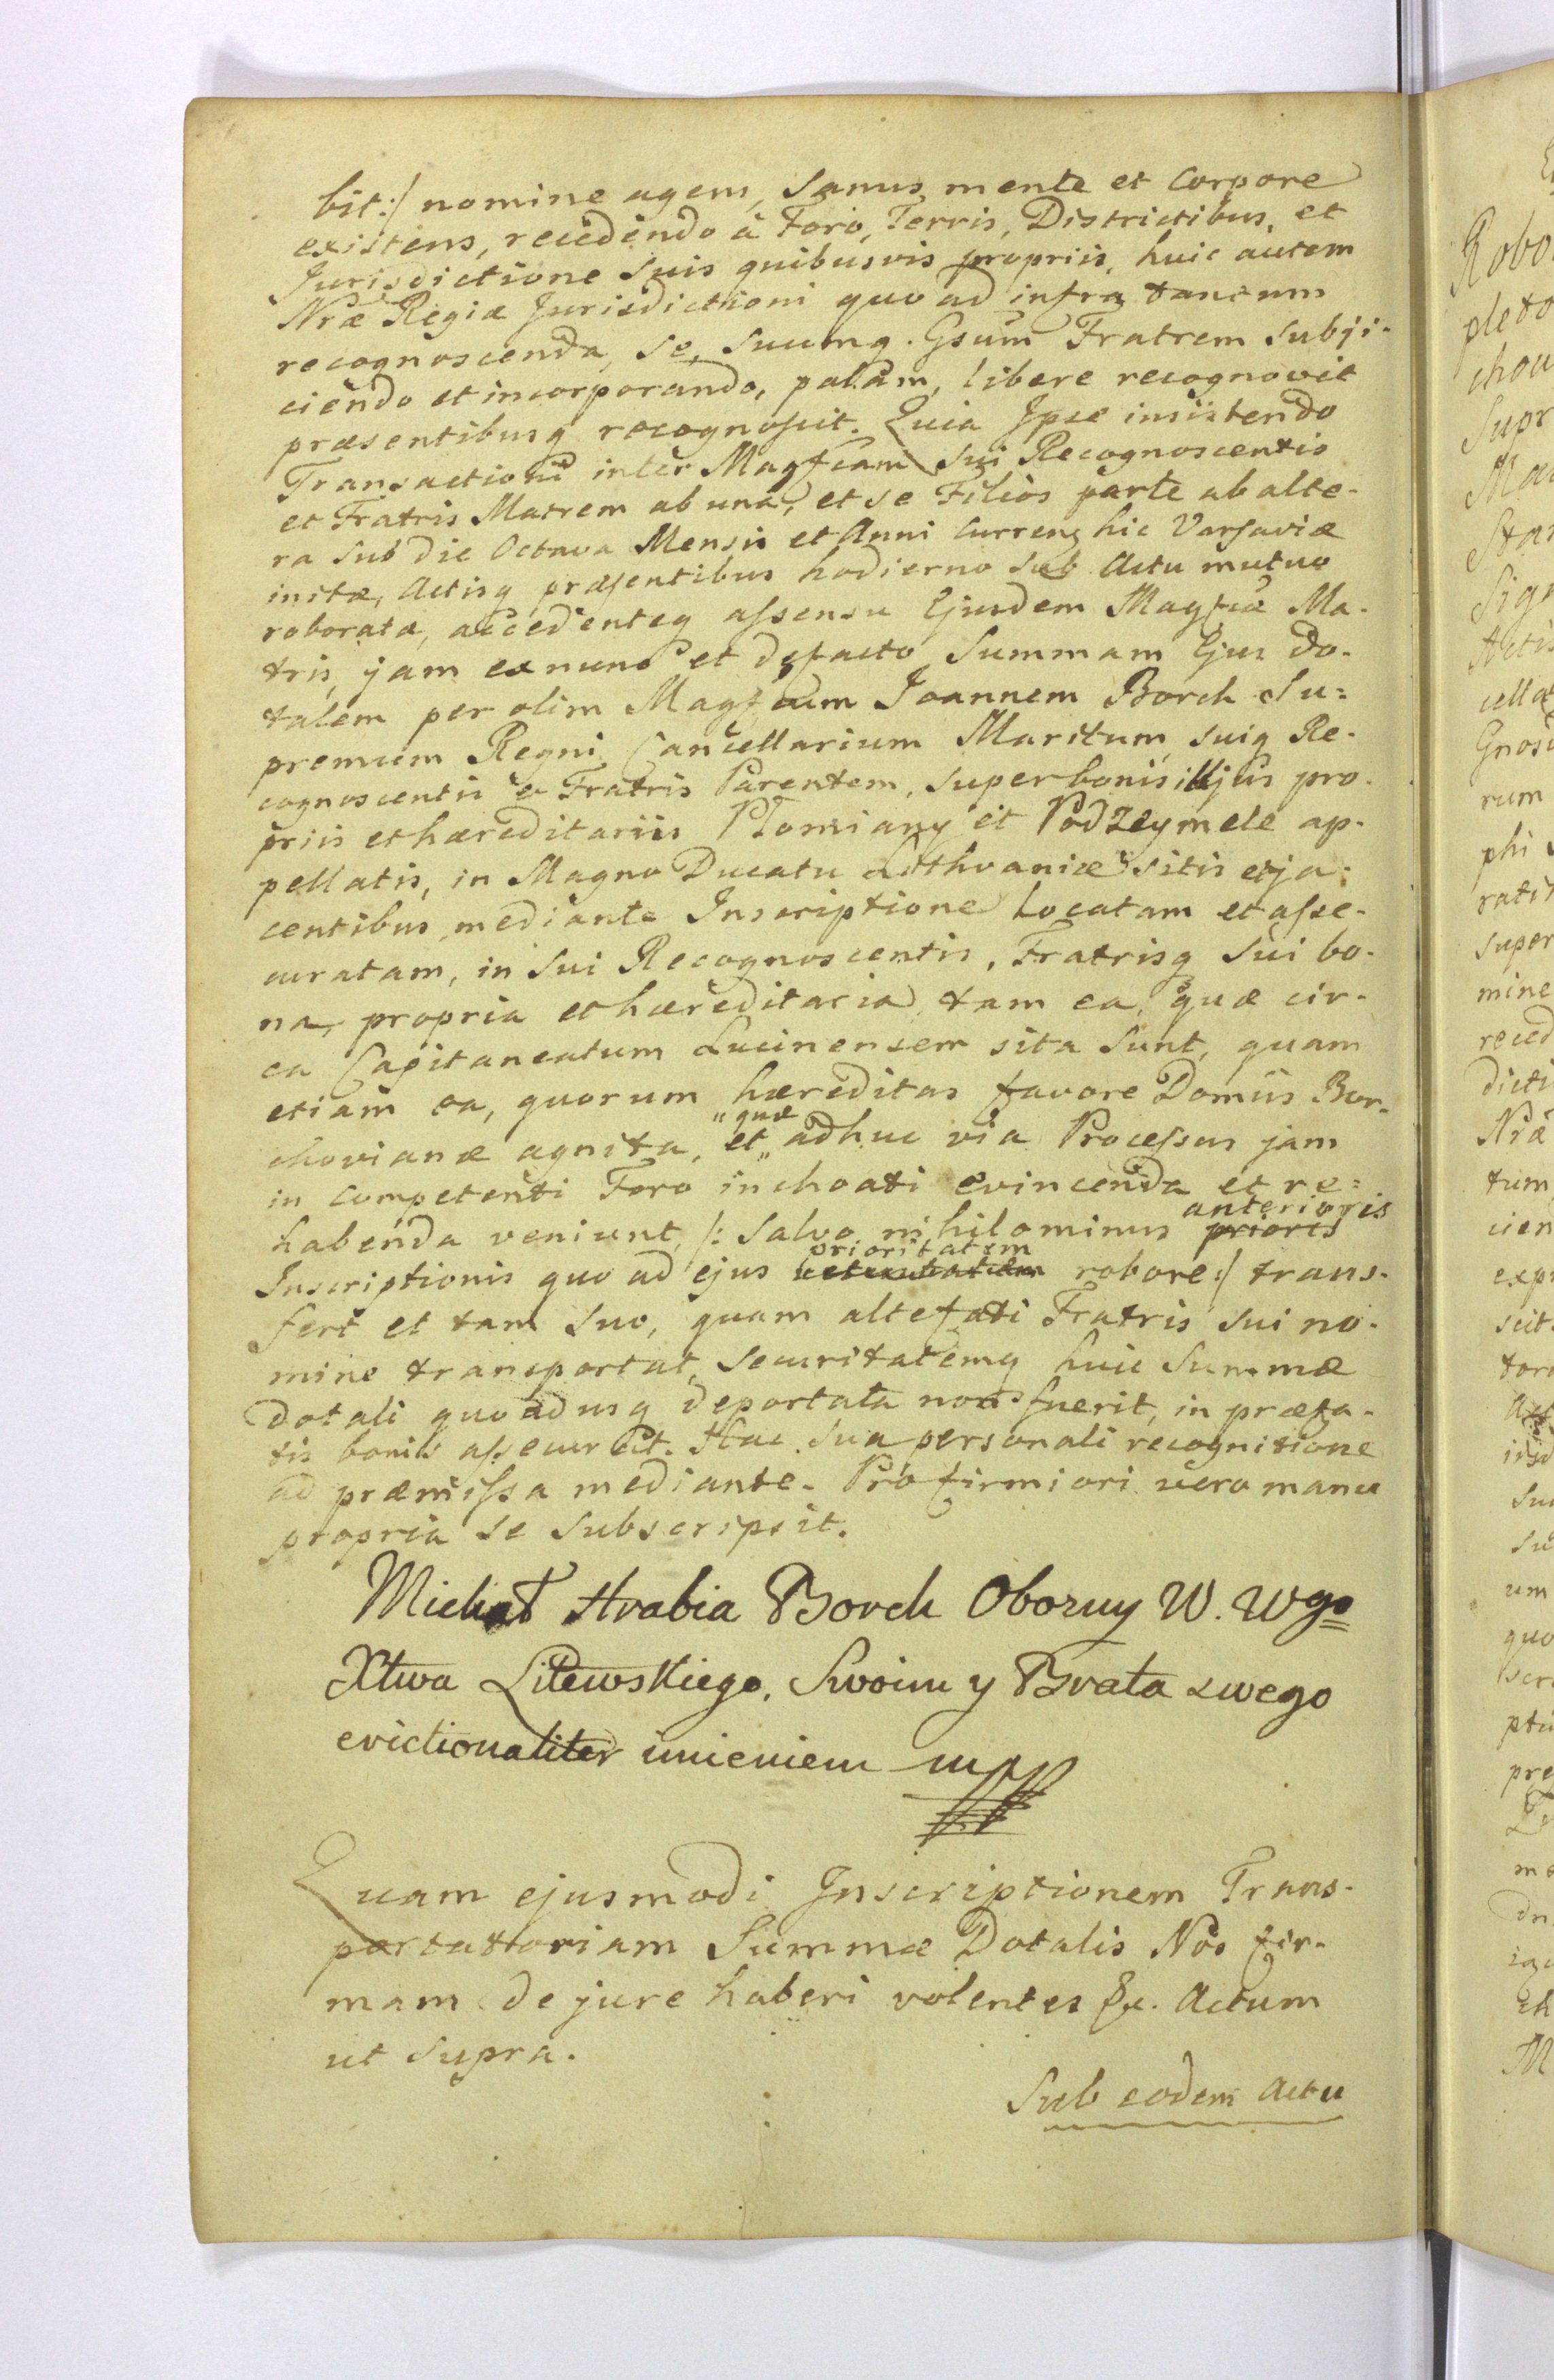 bit:/ nomine agens, Sanus mente et Corpore
existens, recedendo à Foro, Terris, Districtibus, et
Jurisdictione Suis quibusvis propriis, huic autem
Nræ Regiæ Jurisdictioni quo ad infra tantum
recognoscenda, Se, Suumq. Gsum Fratrem Subji-
ciendo et incorporando, palam, libere recognovit
præsentibusq recognoscit. Quia Ipse insistendo
Transactioni inter Magfcam Sui Recognoscentis
et Fratris Matrem ab una, et se Filios parte ab alte-
ra Sub die Octava Mensis et Anni Curren hic Varsaviæ
initæ, Actisq præsentibus hodierno Sub Actu mutuo
roboratæ, accedenteq assensu Ejusdem Magfcæ Ma-
tris, jam ex nunc et defacto Summam Ejus Do-
talem per olim Magfcum Joannem Borch Su=
premum Regni Cancellarium Maritum, suiq Re-
cognoscentis & Fratris Parentem, Super bonis illius pro-
priis et hæreditariis Płomiany et Podzeymele ap-
pellatis, in Magno Ducatu Litthvaniæ sitis et ja-
centibus, mediante Inscriptione Locatam et asse-
curatam, in Sui Recognoscentis, Fratrisq Sui bo-
na, propria et hæreditaria, tam ea, quæ cir-
ca Capitaneatum Lucinensem sita Sunt, quam
etiam ea, quorum hæreditas favore Domûs Bor-
chovianæ agnita, et "quæ" adhuc via Processus jam
in Competenti Foro inchoati evincenda et re=
habenda veniunt, /: Salvo nihilominus prioris anterioris
Inscriptionis quo ad ejus prioritatem robore:/ trans-
fert et tam Suo, quam altefati Fratris Sui no-
mine transportat, Securitatemq huic Summæ
Dotali quoadusq deportata non fuerit, in præfa-
tis bonis assecurat. Hac Sua personali recognitione
ad præmissa mediante. Pro firmiori vero manu
propria se Subscripsit.
Michał Hrabia Borch Oboźny W. Wgo
Xtwa Litewskiego, Swoim y Brata swego
evictionaliter imieniem mpp
Quam ejusmodi Inscriptionem Trans-
portatoriam Summæ Dotalis Nos fir-
mam de jure haberi volentes &c. Actum
ut Supra.
Sub eodem Actu